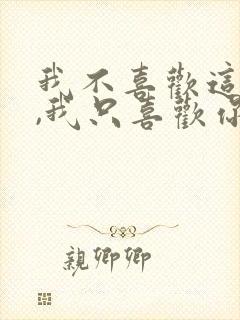 我不喜歡這
,我只喜歡你
親卿卿